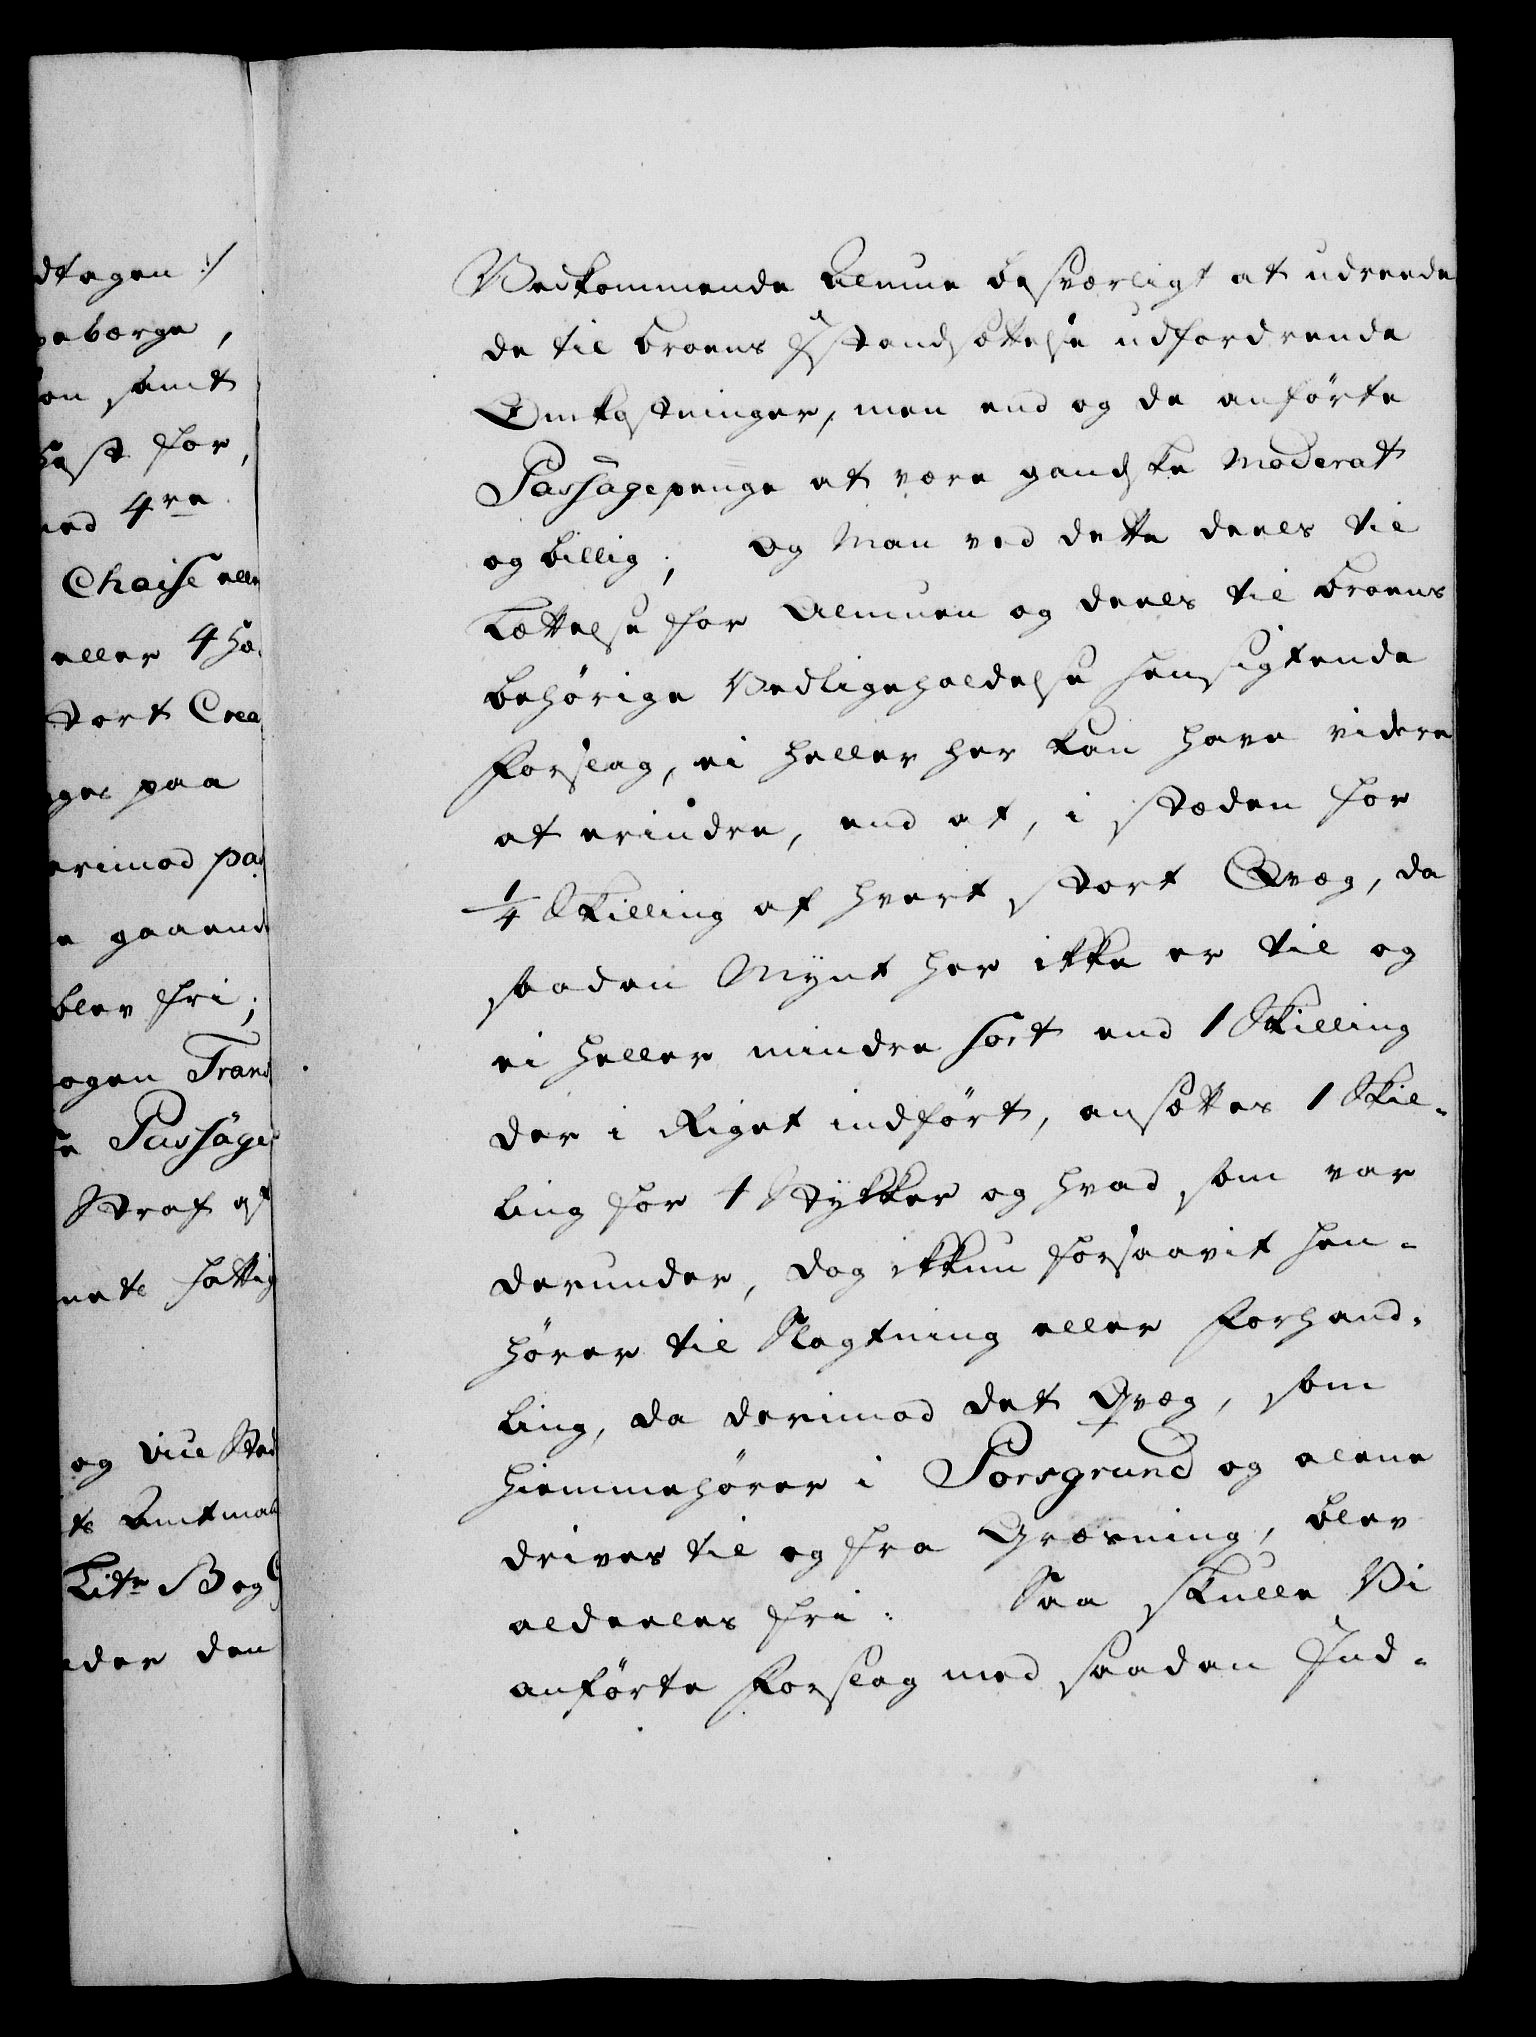 dtagen :/
bebærge,
on samt
Hest for,
med 4re
Chaise eller
eller 4 He-
stort Crea
ges paa
erimod pas
e gaaende
blev fri;
ogen Trans
e Passage
Straf af
nets fattig
og vice Stad
ts Amtmand
Litr B og C
der den
Vedkommende Almue besværligt at udreede
de til Broens Istandsættelse udfordrende
Omkostninger, men end og de anførte
Passagepenge at være gandske moderat
og billig; Og Man ved dette deels til
Lættelse for Almuen og deels til Broens
behørige Vedligeholdelse hensigtende
Forslag, ei heller her kan have videre
at erindre, end at, i stæden for
1/4 Skilling af hvert stort Qvæg, da
saadan Mynt her ikke er til og
ei heller mindre sort end 1 Skilling
der i Riget indført, ansættes 1 Skil-
ling for 4 Stykker og hvad som var
derunder, dog ikkun forsaavit hen-
hører til Slagtning eller Forhand-
ling, da derimod det Qvæg, som
hiemmehører i Porsgrund og alene
drives til og fra Græsning, blev
aldeeles fri: Saa skulle Vi
anførte Forslag med saadan Ind-